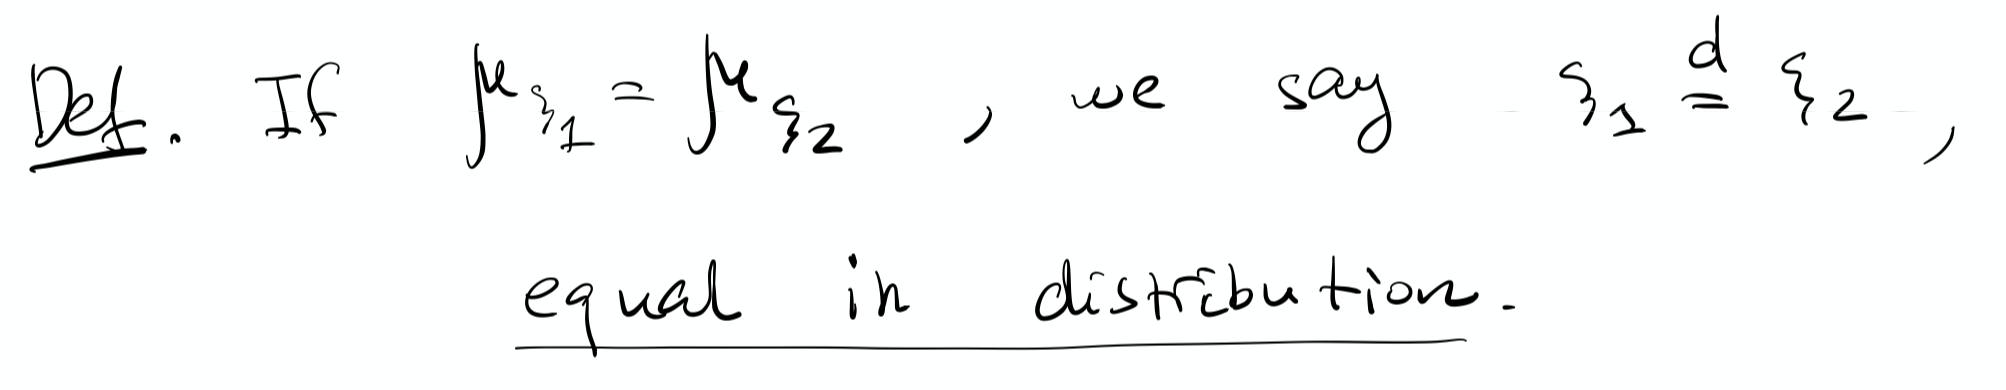 Def. If μ_ξ₁ = μ_ξ₂, we say ξ₁ =^d ξ₂,
equal in distribution.